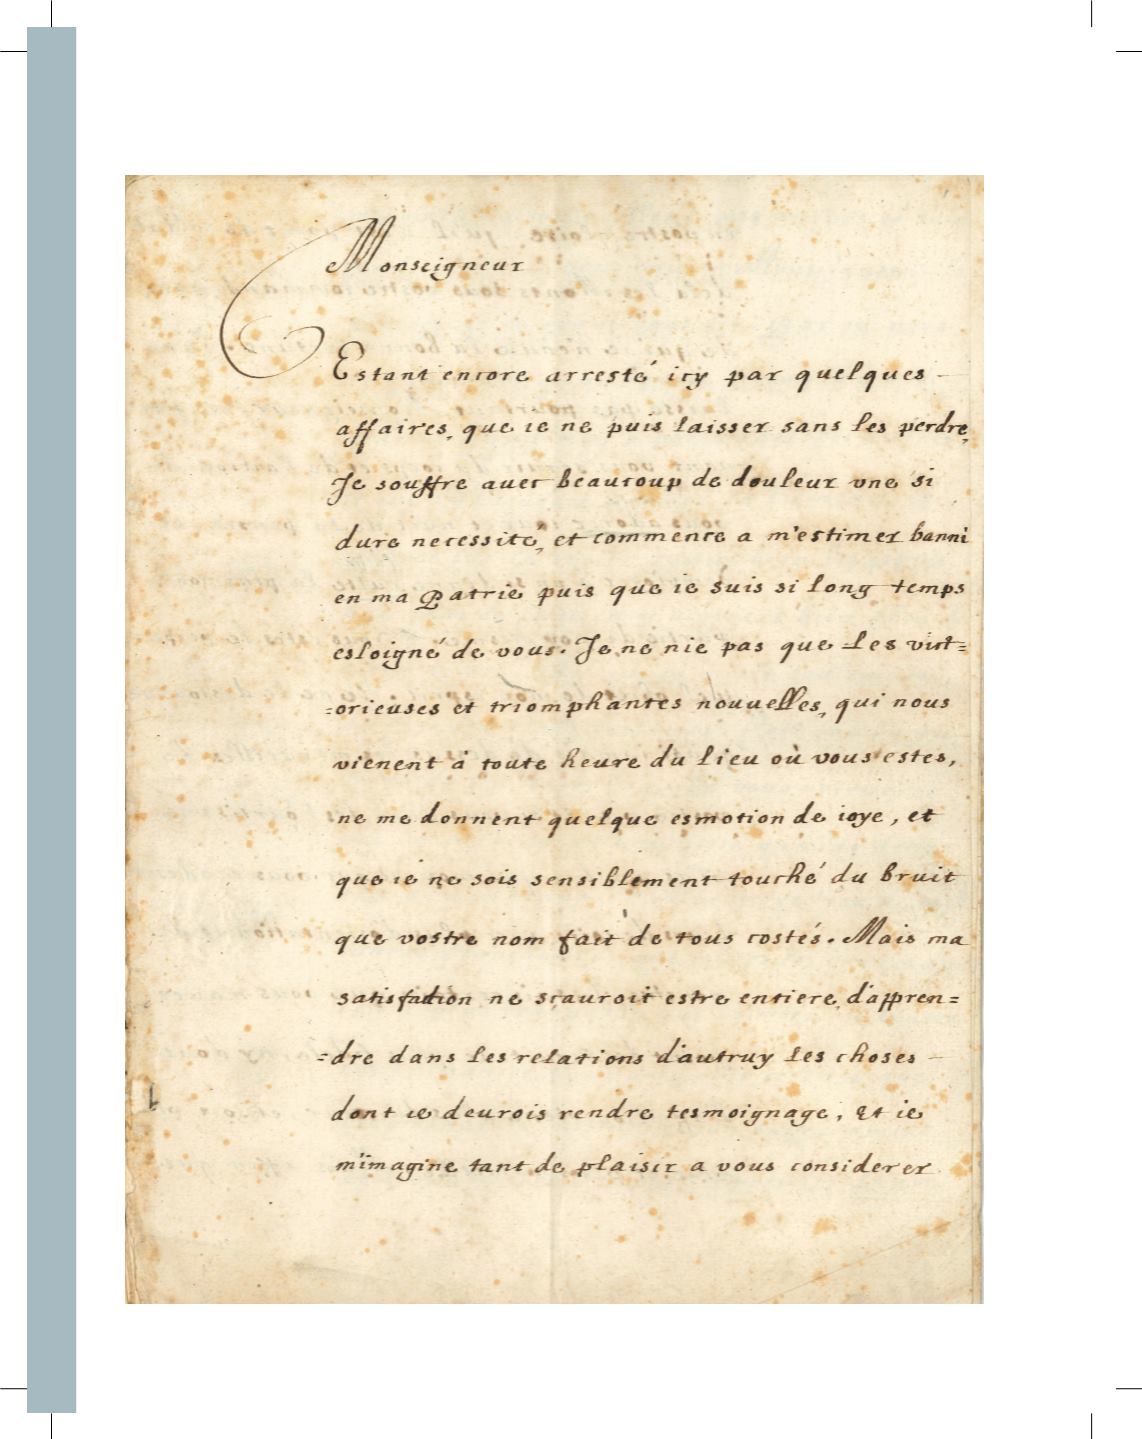 Monseigneur
Estant encore arresté icy par quelques
affaires, que ie ne puis laisser sans les perdre,
Je souffre auec beaucoup de douleur vne si
dure necessite, et commence a m'estimer banni
en ma Patrie puis que ie suis si long temps
esloigné de vous. Je ne nie pas que les vict=
=orieuses et triomphantes nouuelles, qui nous
vienent à toute heure du lieu où vous estes,
ne me donnent quelque esmotion de ioye, et
que ie ne sois sensiblement touché du bruit
que vostre nom fait de tous costés. Mais ma
satisfaction ne scauroit estre entiere, d'appren=
=dre dans les relations d'autruy les choses
dont ie deurois rendre tesmoignage, Et ie
m'imagine tant de plaisir a vous considerer
1